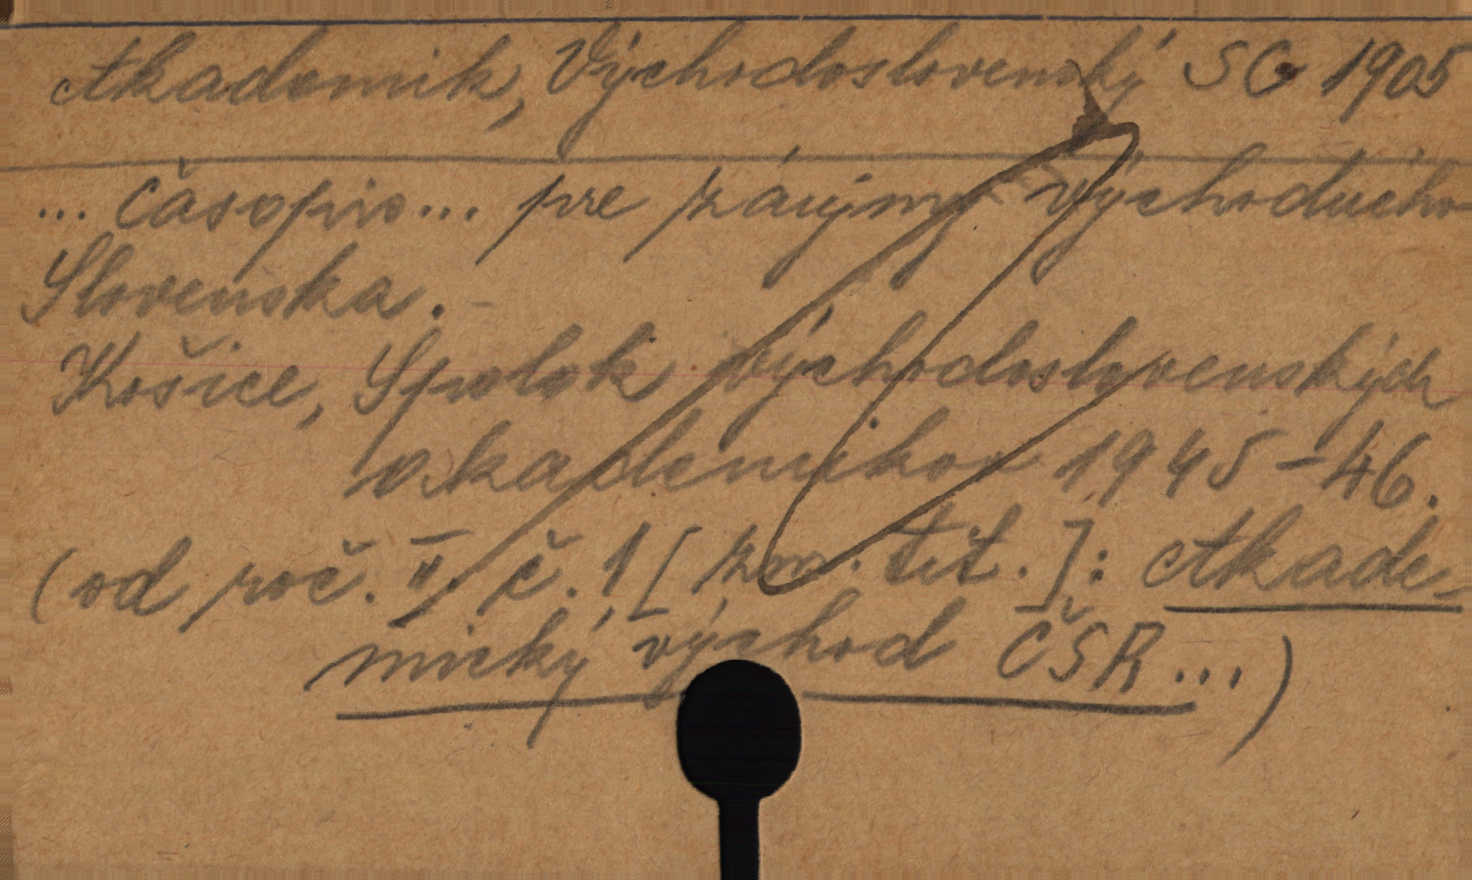 Akademik, Východoslovenský SC 1905
... časopis... pre záujmy východného
Slovenska.
Košice, Spolok východoslovenských
akademikov 1945-46.
(od roč. II, č. 1 [zm. tit.]: Akade-
mický východ ČSR...)